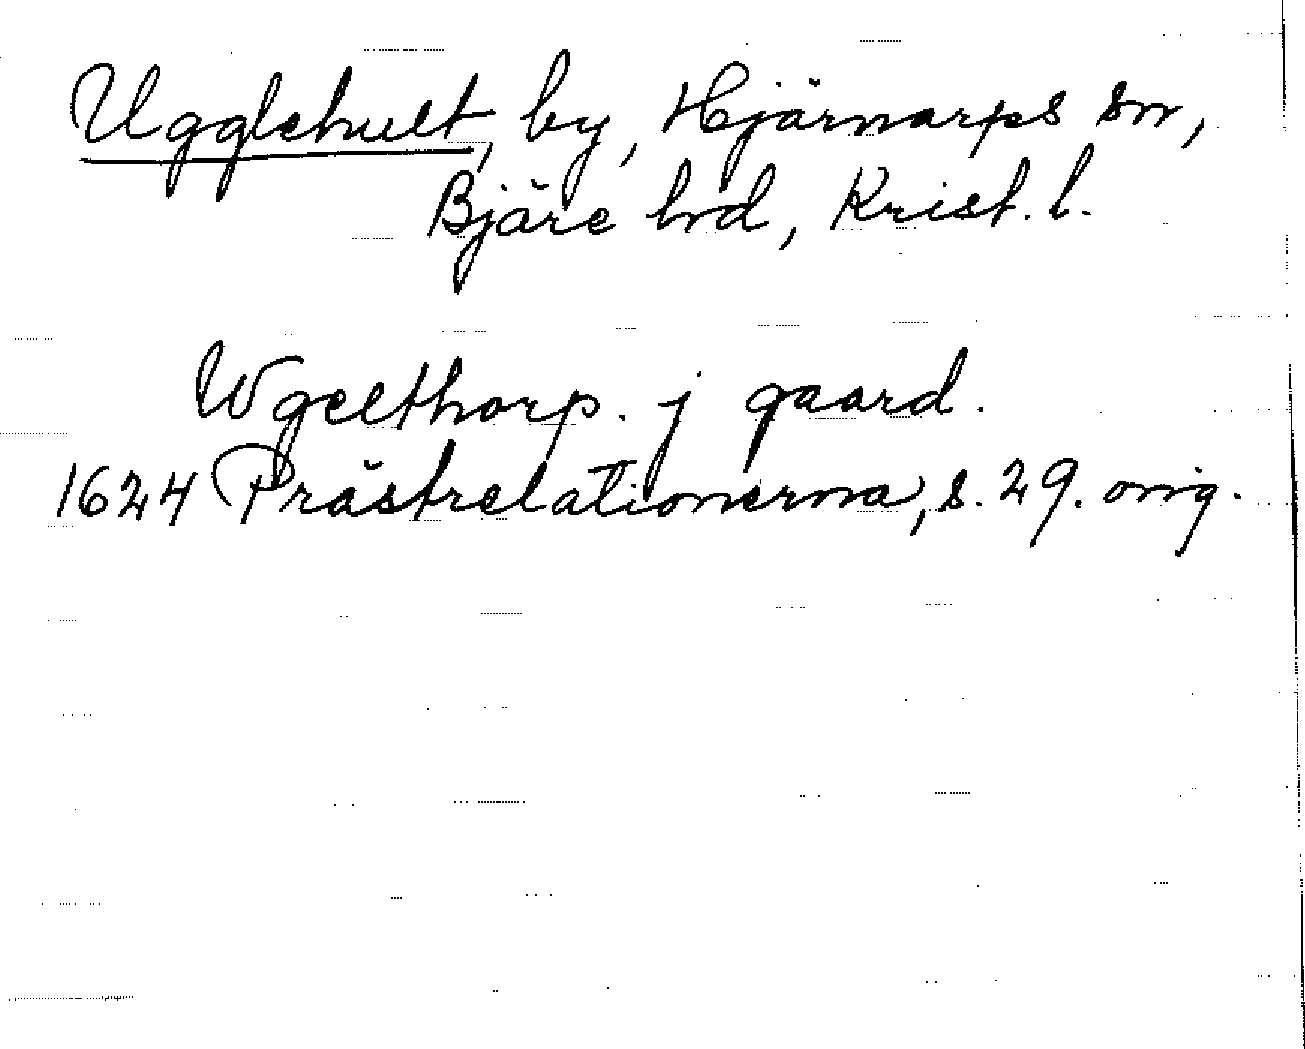 Ugglehult, by, Hjärnarps sn,
Bjäre hd, Krist. l.
Wgelthorp. j gaard.
1624 Prästrelationerna, s. 29. orig.